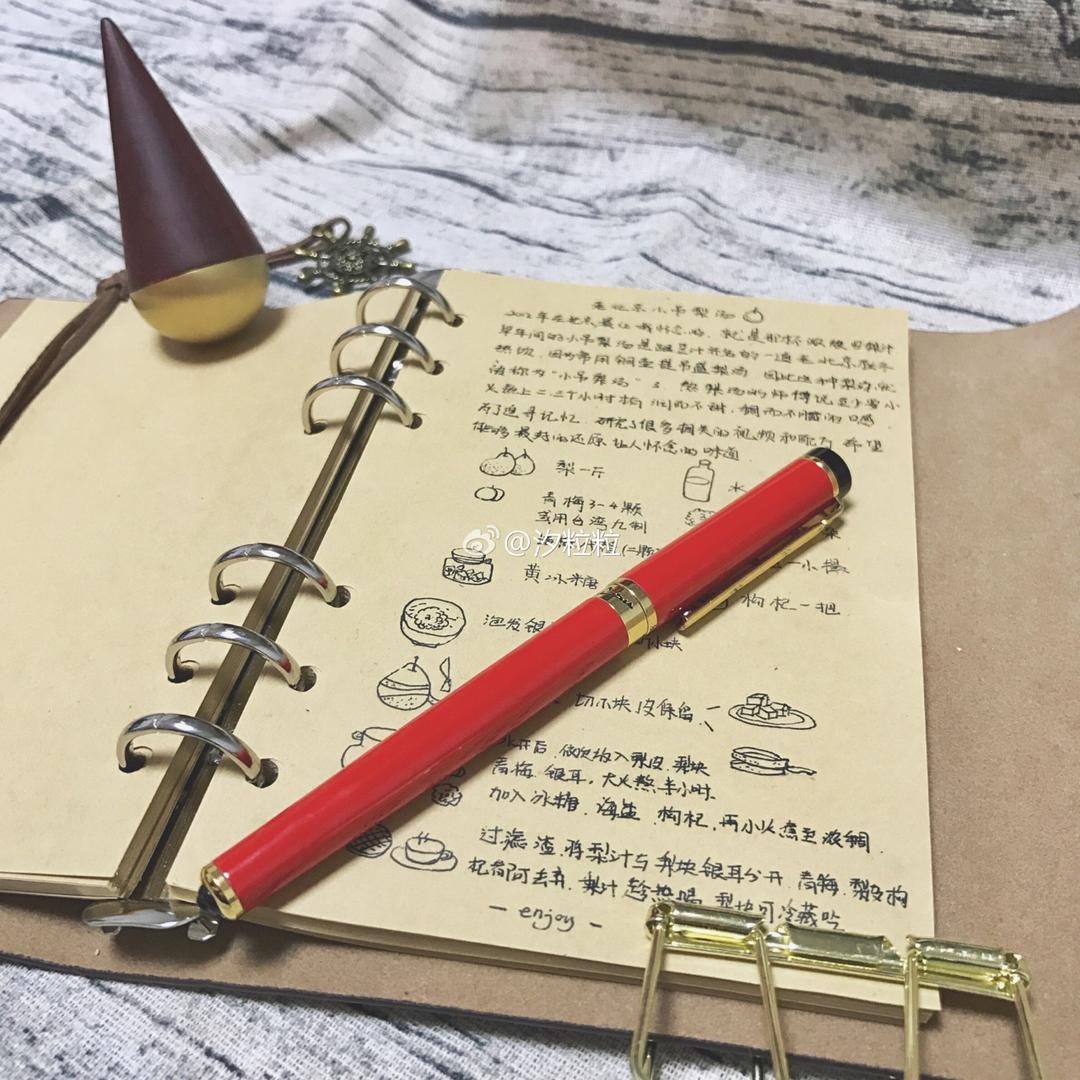 老北京小吊梨汤
2012年在北京最让我怀念的，就是那杯浓馥的梨汁
早年间的小吊梨汤是跟豆汁齐名的一道老北京秋冬
热饮，因为常用铜壶提吊盛梨汤，因此这种梨汤就
被称为“小吊梨汤”了。熬梨汤的师傅说至少要小
火熬上二三个小时构 润而不甜，稠而不腻的口感
为了追寻记忆，研究了很多相关的视频和配方 希望
能够最好的还原让人怀念的味道
梨一斤
水
青梅3-4颗
或用台湾九制
(二颗
黄冰糖
一小撮
枸杞一把
泡发银
小块
切小块 皮保留
水开后，依次放入梨皮，梨块
青梅，银耳，大火熬半小时
加入冰糖，海盐，枸杞，再小火煮至浓稠
过滤渣，将梨汁与梨块银耳分开，青梅，梨皮，枸
杞都可去弃，梨汁趁热喝，梨块可冷藏吃
- enjoy -
@汐粒粒